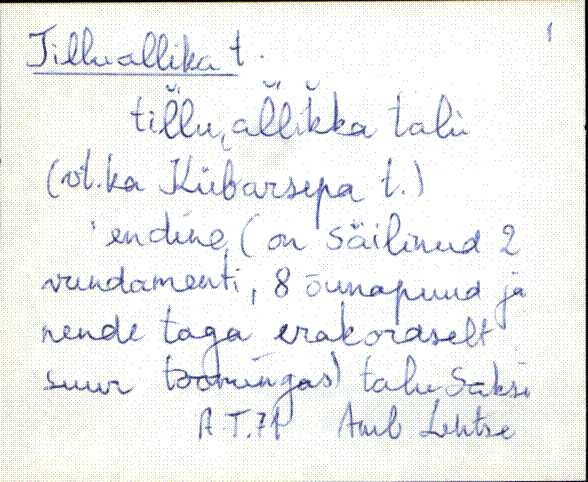 Tilluallika t. 1
til̆lu‿al̆lik̆ka talu
(vt. ka Kübarsepa t.)
endine (on säilinud 2
vundamenti, 8 õunapuud ja
nende taga erakordselt
suur toomingas) talu Saksi
A.T.71 Amb Lehtse